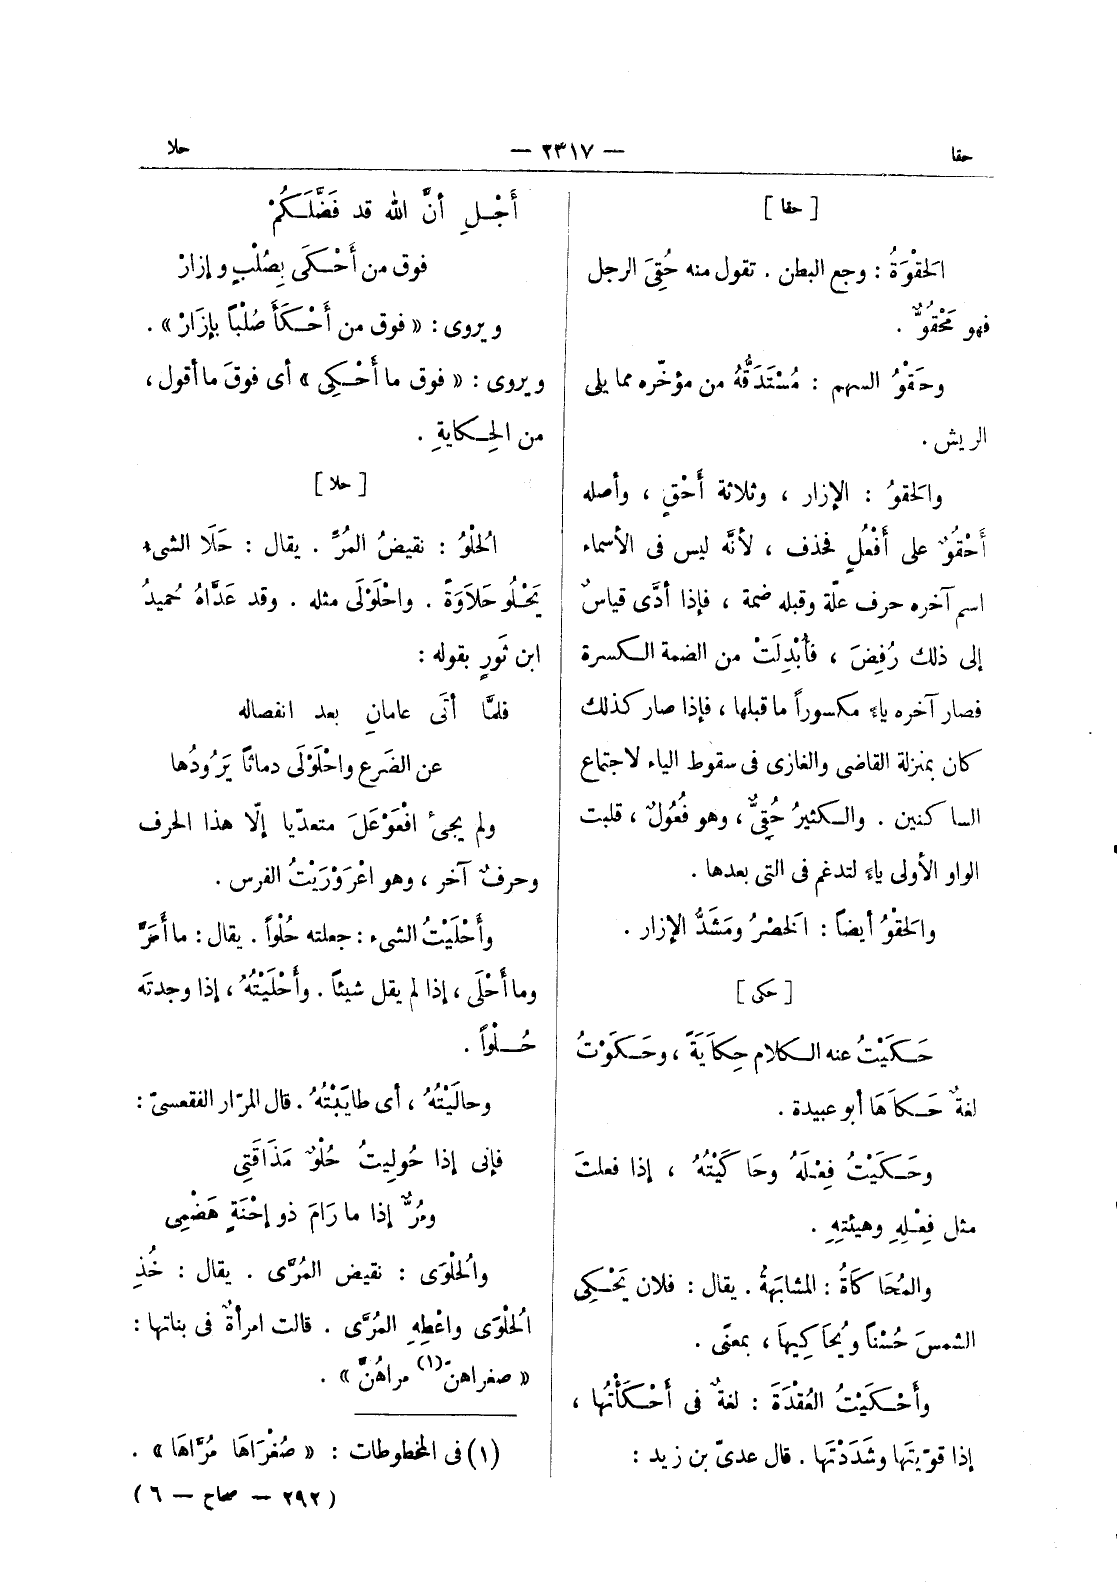 حقا
— ٢٣١٧ —
حلا
[ حقا ]
الحَقْوَةُ : وجع البطن . تقول منه حُقِىَ الرجل
فهو مَحْقُوٌّ .
وحَقْوُ السهم : مُسْتَدَقُّهُ من مؤخّره مما يلى
الريش .
والحَقوُ : الإزار ، وثلاثة أَحْقٍ ، وأصله
أَحْقُوٌ على أَفْعُلٍ فحذف ، لأنَّه ليس فى الأسماء
اسم آخره حرف علّة وقبله ضمة ، فإذا أدَّى قياسٌ
إلى ذلك رُفِضَ ، فأُبْدِلَتْ من الضمة الكسرة
فصار آخره ياءً مكسوراً ما قبلها ، فإذا صار كذلك
كان بمنزلة القاضى والغازى فى سقوط الياء لاجتماع
الساكنين . والكثيرُ حُقِىٌّ ، وهو فُعُولٌ ، قلبت
الواو الأولى ياءً لتدغم فى التى بعدها .
والحَقْوُ أيضاً : الخَصْرُ ومَشَدُّ الإزار .
[ حكى ]
حَكَيْتُ عنه الكلام حِكَايَةً ، وحَكَوْتُ
لغةٌ حَكاَهَا أبو عبيدة .
وحَكَيْتُ فِعْلَهُ وحَاكَيْتُهُ ، إذا فعلتَ
مثل فِعْلِهِ وهيئتِهِ .
والمُحَاكَاةُ : المشابَهةُ . يقال : فلان يَحْكِى
الشمسَ حُسْناً ويُحَاكِيهاَ ، بمعنًى .
وأَحْكَيْتُ العُقْدَةَ : لغةٌ فى أَحْكَأْتُها ،
إذا قوّيتَها وشَدَدْتَها . قال عدىّ بن زيد :
أَجْلِ أنَّ الله قد فَضَّلَكُمْ
فوق من أَحْكَى بِصُلْبٍ وإزارْ
ويروى : « فوق من أَحْكَأَ صُلْباً بإِزَارْ » .
ويروى : « فوق ما أَحْكِى » أى فوقَ ما أقول ،
من الحِكايةِ .
[ حلا ]
الحُلْوُ : نقيضُ المُرِّ . يقال : حَلَا الشىء
يَحْلُو حَلَاوَةً . واحْلَوْلَى مثله . وقد عَدَّاهُ حُميدُ
ابن ثَورٍ بقوله :
فلمَّا أتَى عامانِ بعد انفصاله
عن الضَرع واحْلَوْلَى دماثًا يَرُودُها
ولم يجئ افْعَوْعَلَ متعدّيا إلّا هذا الحرف
وحرفٌ آخر ، وهو اعْرَوْرَيْتُ الفرس .
وأَحْلَيْتُ الشىء : جعلته حُلْواً . يقال : ما أَمَرَّ
وما أَحْلَى ، إذا لم يقل شيئاً . وأَحْلَيْتُهُ ، إذا وجدتَه
حُلْواً .
وحالَيْتُهُ ، أى طايَبْتُهُ . قال المرّار الفقعسىّ :
فإنى إذا حُولِيتُ حُلْوٌ مَذَاقَتِى
ومُرٌّ إذا ما رَامَ ذو إحْنَةٍ هَضْمِى
والحُلْوَى : نقيض المُرَّى . يقال : خُذِ
الحُلْوَى واعْطِهِ المُرَّى . قالت امرأةٌ فى بناتها :
« صغراهنّ (١) مراهُنَّ » .
(١) فى المخطوطات : « صُغْرَاهَا مُرَّاهَا » .
( ٢٩٢ — صحاح — ٦ )